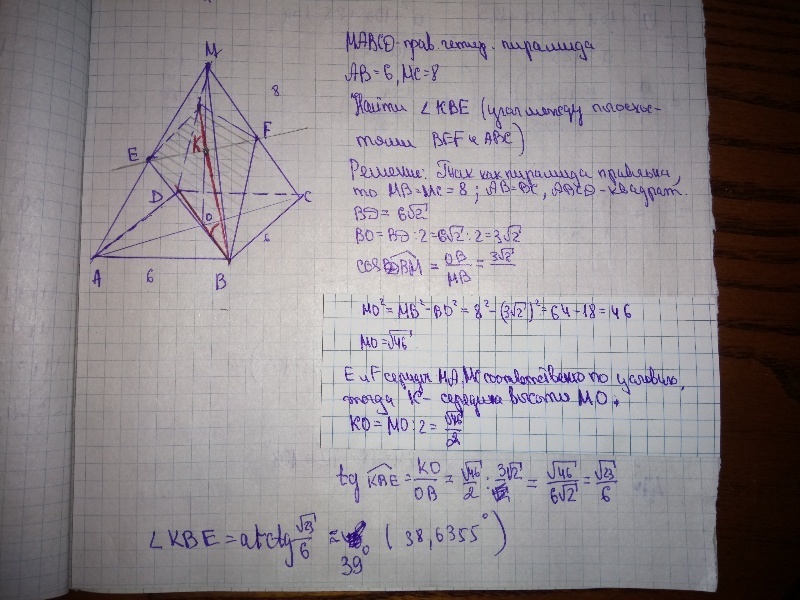 M
8
K
F
E
D
C
O
6
A
6
B
MABCD-прав. четыр. пирамида
AB=6, MC=8
Найти ∠KBE (угол между плоскос-
тями BEF и ABC)
Решение: Так как пирамида правильная,
то MB=MC=8; AB=BC, ABCD-квадрат.
BD=6√2
BO=BD:2=6√2:2=3√2
cos OBM = OB/MB = 3√2/
MO²=MB²-BO²=8²-(3√2)²=64-18=46
MO=√46
E и F середины MA, MC соответственно по условию,
тогда K- середина высоты MO.
KO=MO:2=√46/2
tg KBE = KO/OB = √46/2 : 3√2 = √46/6√2 = √23/6
∠KBE=arctg √23/6 ≈ 39° (38,6355°)